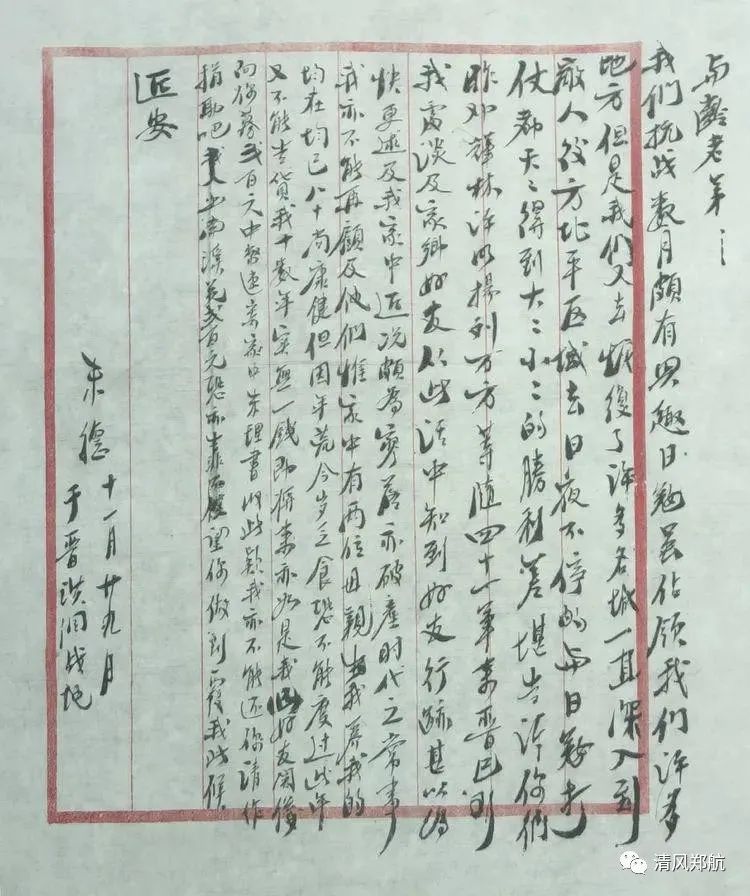 与龄老弟：
我们抗战数月颇有兴趣日寇虽佔领我们许多
地方但是我们又去恢復了许多名城一直深入到
敵人後方北平区域去日夜不停的与日寇打
仗都天々得到大々小々的勝利差堪告你们
昨邓辉林许明扬刘万方等随四十一军来晋已到
我處谈及家鄉好友从此话中知到好友行踪甚以为
快更述及我家中近况颇为寥落亦破產时代之常事
我亦不能再顾及他们惟家中有两位母親生我养我的
均在均已八十尚康健但因年荒今岁乏食恐不能度过此年
又不能告贷我十数年实無一钱即将来亦如是我以好友関係
向你募弍百元中幣速寄家中朱理書收此款我亦不能还你请作
捐助吧我又函南溪兄弍百元恐亦靠不住望你做到復我此候
近安
朱德 十一月廿九日
于晋洪洞战地
清风郑航